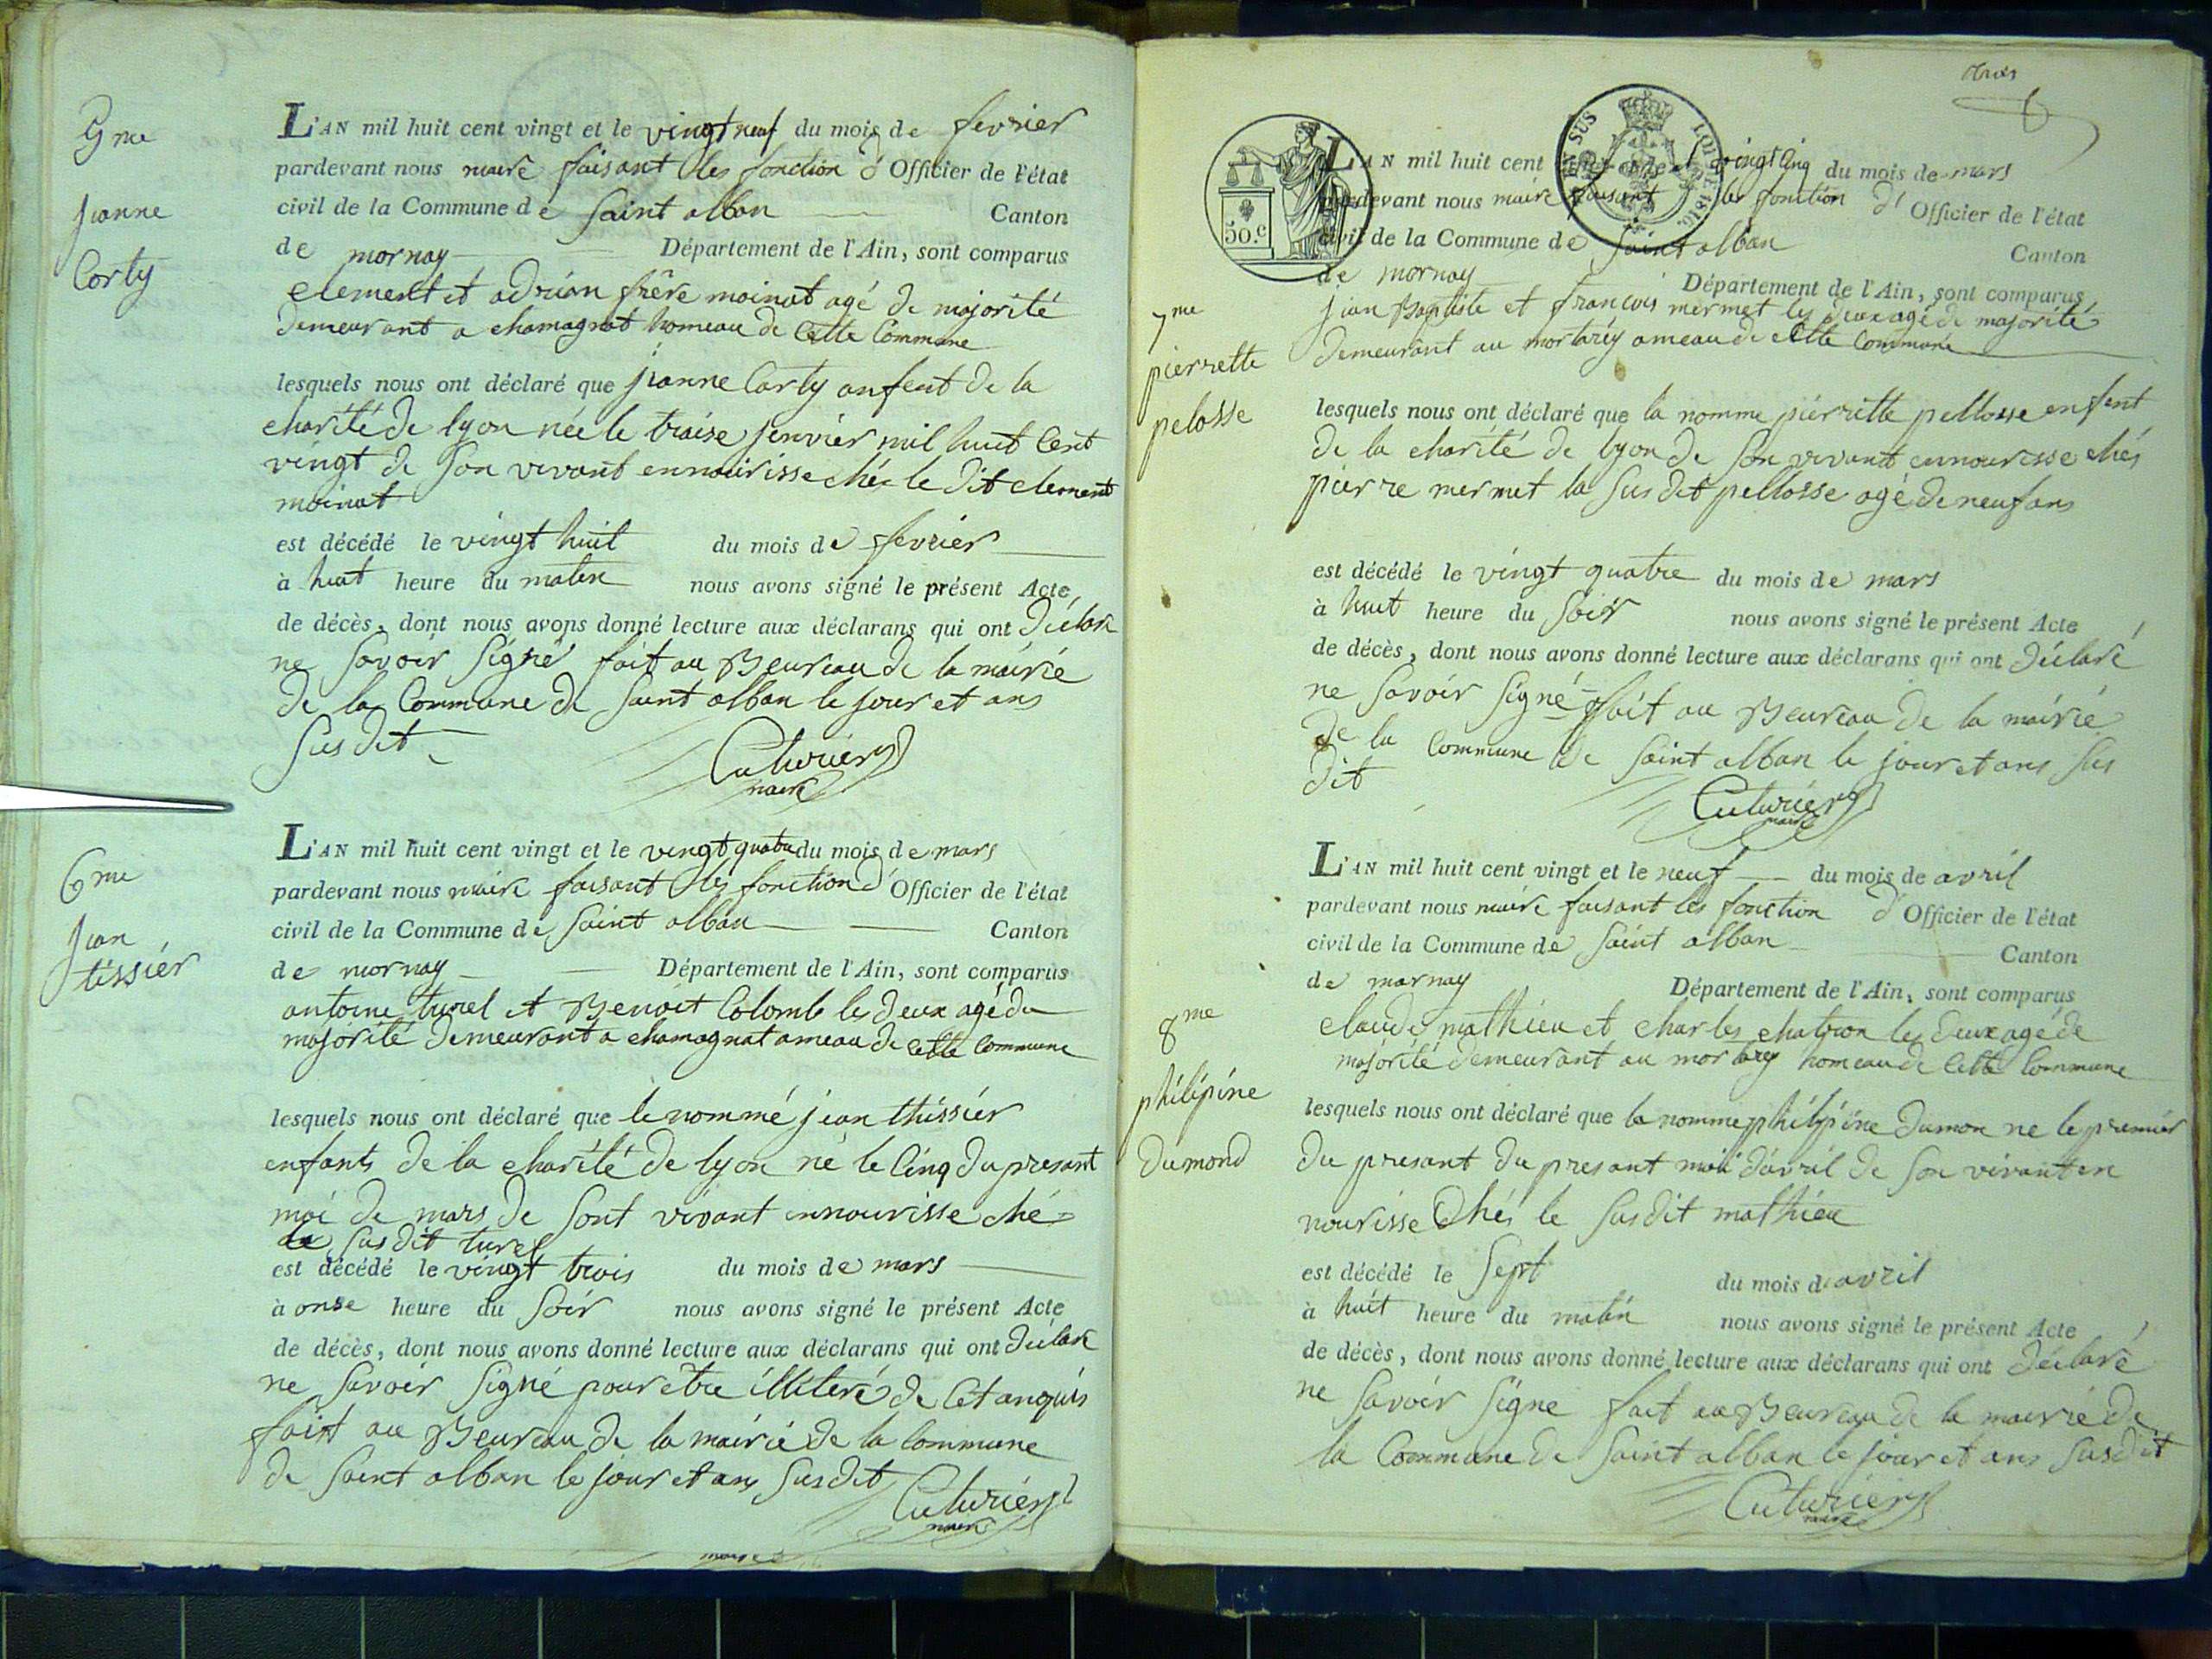 5me
jeanne
Corty
L'AN mil huit cent vingt et le vingt neuf du mois de fevrier
pardevant nous maire faisant les fonction d'Officier de l'état
civil de la Commune de saint alban Canton
de mornay Département de l'Ain, sont comparus
element et adrian frêre moinat agé de majorité
demeurant a chamagnat homeau de Cette Commune
lesquels nous ont déclaré que jeanne Corty anfent de la
charité de lyon née le traise jenvier mil huit Cent
vingt de son vivant ennourisse chés le dit element
moinat
est décédé le vingt huit du mois de fevrier
à huit heure du matin nous avons signé le présent Acte
de décès, dont nous avons donné lecture aux déclarans qui ont déclaré
ne savoir signé fait au Beureau de la mairie
de la Commune de saint alban le jour et ans
susdit
Cuturier
maire
6me
jean
tissiér
L'AN mil huit cent vingt et le vingt quatre du mois de mars
pardevant nous maire faisant les fonction d'Officier de l'état
civil de la Commune de saint alban Canton
de mornay Département de l'Ain, sont comparus
antoine turel et Benoit Colomb les deux agé de
majorité demeurant a chamagnat ameau de cette Commune
lesquels nous ont déclaré que le nommé jean thissiér
enfants de la charité de lyon né le Cinq du presant
moi de mars de sont vivant ennourisse ché
le susdit turel
est décédé le vingt trois du mois de mars
à onse heure du soir nous avons signé le présent Acte
de décès, dont nous avons donné lecture aux déclarans qui ont déclaré
ne savoir signé pour être illiteré de Cet anquis
fait au Beureau de la mairie de la Commune
de saint alban le jour et ans susdit
Cuturier
maire
50.c
LOI DE 1816.
L'AN mil huit cent vingt et le vingt cinq du mois de mars
pardevant nous maire faisant les fonction d'Officier de l'état
civil de la Commune de saint alban
Canton
de mornay Département de l'Ain, sont comparus
7me
pierrette
pelosse
jean Baptiste et francois mermet les deux agé de majorité
demeurant au mortarey ameau de cette Commune
lesquels nous ont déclaré que la nomme pierrette pellosse enfent
de la charité de lyon de son vivant ennourisse chés
pierre mermet la susdit pellosse agé de neuf ans
est décédé le vingt quatre du mois de mars
à huit heure du soir nous avons signé le présent Acte
de décès, dont nous avons donné lecture aux déclarans qui ont déclaré
ne savoir signé fait au Beureau de la mairie
de la Commune de saint alban le jour et ans sus
dit
Cuturier
maire
L'AN mil huit cent vingt et le neuf du mois de avril
pardevant nous maire faisant les fonction d'Officier de l'état
civil de la Commune de saint alban
Canton
de mornay Département de l'Ain, sont comparus
8me
philipine
dumond
claude mathieu et charles chatron les deux agé de
majorité demeurant au mortarey homeau de Cette Commune
lesquels nous ont déclaré que la nomme philipine dumon ne le premier
du presant du presant moi d'avril de son vivant en
nourisse Chés le susdit mathieu
est décédé le sept du mois d avril
à huit heure du matin nous avons signé le présent Acte
de décès, dont nous avons donné lecture aux déclarans qui ont déclaré
ne savoir signe fait au Beureau de la mairie de
la Commune de saint alban le jour et ans susdit
Cuturier
maire